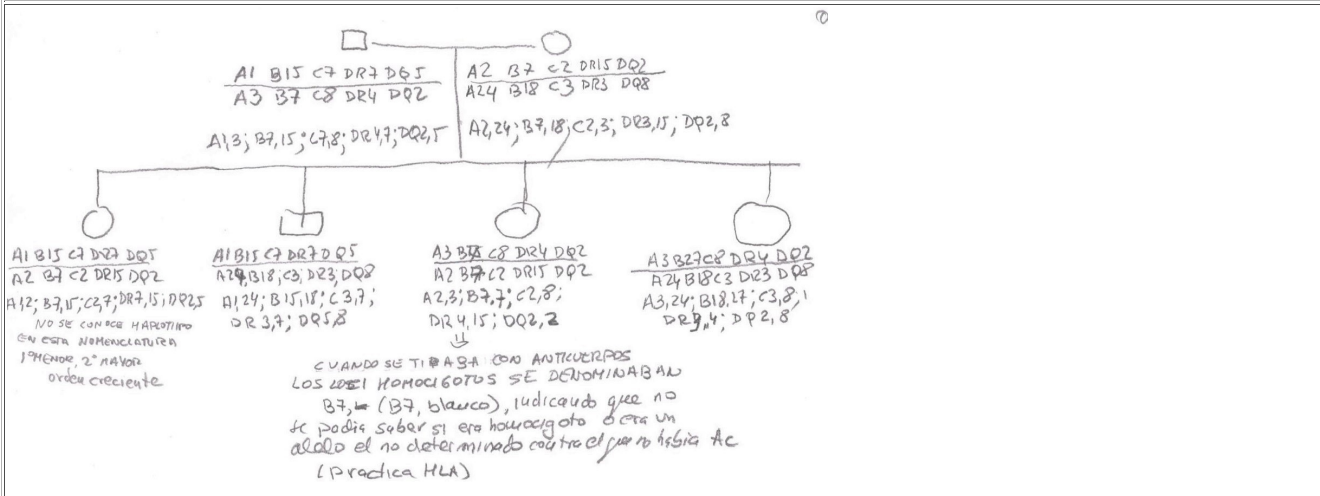 A1 B15 C7 DR7 DQ5
A3 B7 C8 DR4 DQ2
A1,3; B7,15; C7,8; DR4,7; DQ2,5
A2 B7 C2 DR15 DQ2
A24 B18 C3 DR3 DQ8
A2,24; B7,18; C2,3; DR3,15; DQ2,8
A1 B15 C7 DR7 DQ5
A2 B7 C2 DR15 DQ2
A1,2; B7,15; C2,7; DR7,15; DQ2,5
NO SE CONOCE HAPLOTIPO
EN ESTA NOMENCLATURA
1º MENOR, 2º MAYOR
orden creciente
A1 B15 C7 DR7 DQ5
A24, B18, C3, DR3, DQ8
A1,24; B15,18; C3,7;
DR3,7; DQ5,8
A3 C8 DR4 DQ2
A2 B7 C2 DR15 DQ2
A2,3; B7,7; C2,8;
DR4,15; DQ2,2
CUANDO SE TIPABA CON ANTICUERPOS
LOS LOCI HOMOCIGOTOS SE DENOMINABAN
B7,- (B7, blanco), indicando que no
se podia saber si era homocigoto o era un
alelo el no determinado contra el que no habia Ac
(practica HLA)
A3 B27 C8 DR4 DQ2
A24 B18 C3 DR3 DQ8
A3,24; B18,27; C3,8;
DR3,4; DQ2,8